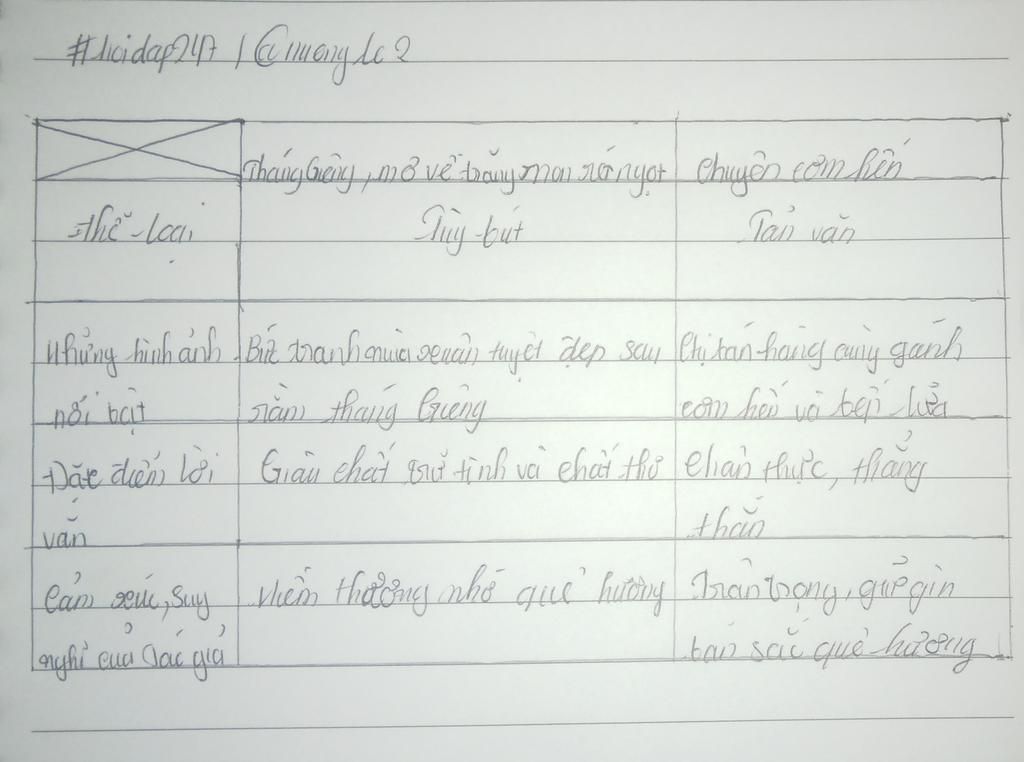 #hoidap247 / @muongle2
Tháng Giêng, mơ về trăng non rét ngọt
Chuyện cơm hến
Thể loại
Tùy bút
Tản văn
Những hình ảnh
nổi bật
Bức tranh mùa xuân tuyệt đẹp sau
rằm tháng Giêng
Chị bán hàng cùng gánh
cơm hến và bếp lửa
Đặc điểm lời
văn
Giàu chất trữ tình và chất thơ
Chân thực, thẳng
thắn
Cảm xúc, suy
nghĩ của tác giả
Niềm thương nhớ quê hương
Trân trọng, giữ gìn
bản sắc quê hương